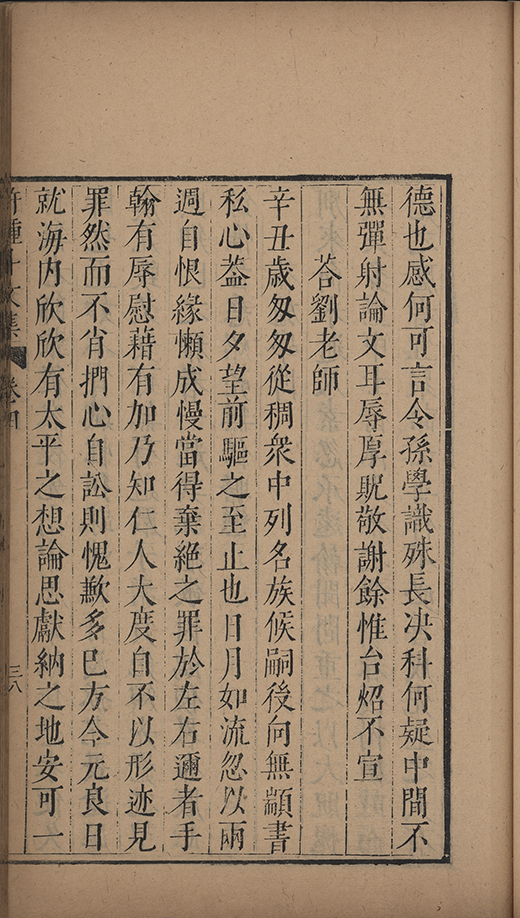 德也感何可言令孫學識殊長決科何疑中間不
無彈射論文耳辱厚貺敬謝餘惟台炤不宣
荅劉老師
辛丑歲匆匆從稠衆中列名族候嗣後向無顓書
私心葢日夕望前驅之至止也日月如流忽以兩
週自恨緣懶成慢當得棄絶之罪於左右邇者手
翰有辱慰藉有加乃知仁人大度自不以形迹見
罪然而不肖捫心自訟則愧歉多巳方今元良日
就海内欣欣有太平之想論思獻納之地安可一
文集 卷四
三八